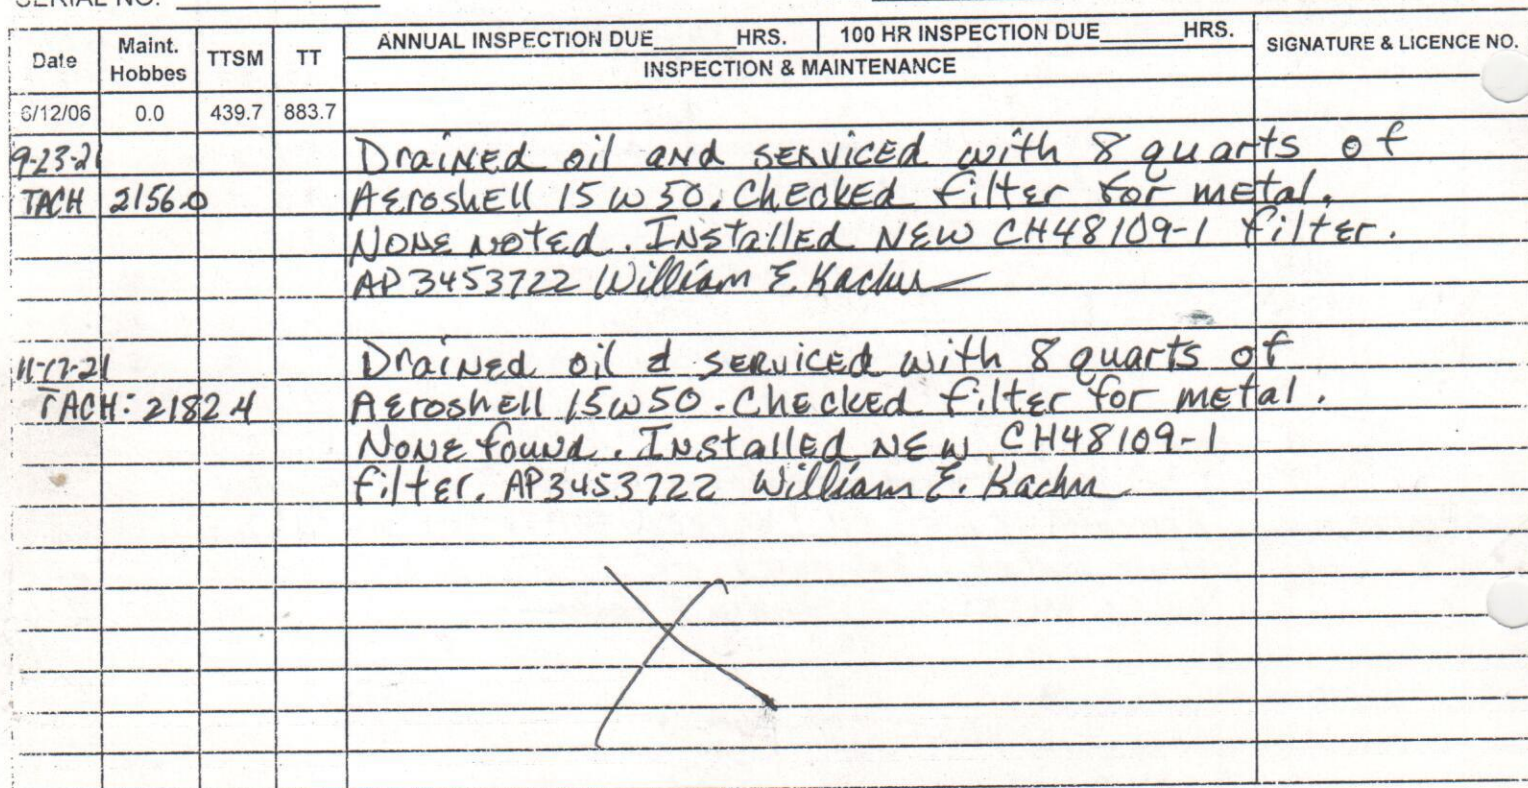 SERIAL NO.
Date Maint. Hobbes TTSM TT ANNUAL INSPECTION DUE HRS. 100 HR INSPECTION DUE HRS. SIGNATURE & LICENCE NO.
INSPECTION & MAINTENANCE
6/12/06 0.0 439.7 883.7
9-23-21 Drained oil and serviced with 8 quarts of
TACH 2156.0 Aeroshell 15W50. Checked filter for metal.
None noted. Installed new CH48109-1 filter.
AP3453722 William E. Kachur
11-17-21 Drained oil & serviced with 8 quarts of
TACH: 2182.4 Aeroshell 15W50. Checked filter for metal.
None found. Installed new CH48109-1
filter. AP3453722 William E.